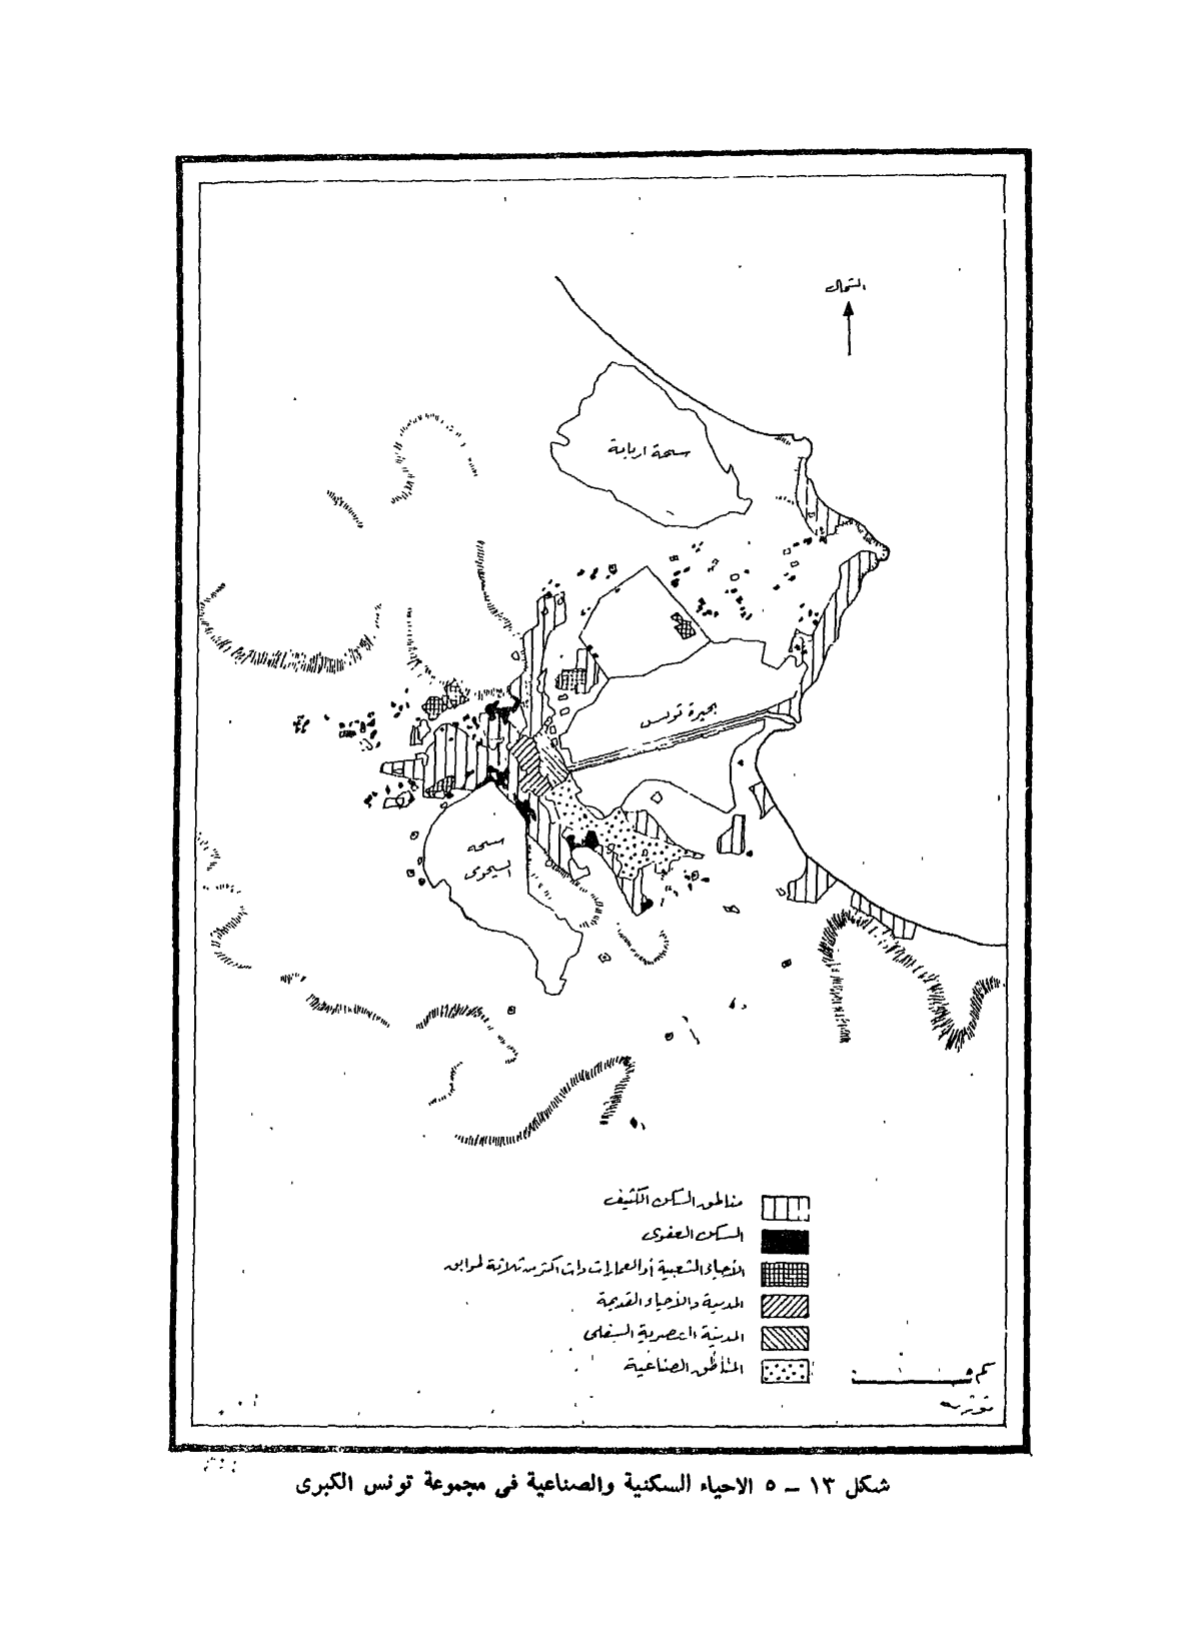 الشمال
سبخة اريانة
بحيرة تونس
سبخة
السيجومي
مناطق السكن الكثيف
السكن العفوى
الأحياء الشعبية أو العمارات ذات اكثر من ثلاثة طوابق
المدينة والأحياء القديمة
المدينة العصرية السفلى
المناطق الصناعية
كم
شكل ١٣ – ٥ الاحياء السكنية والصناعية في مجموعة تونس الكبرى